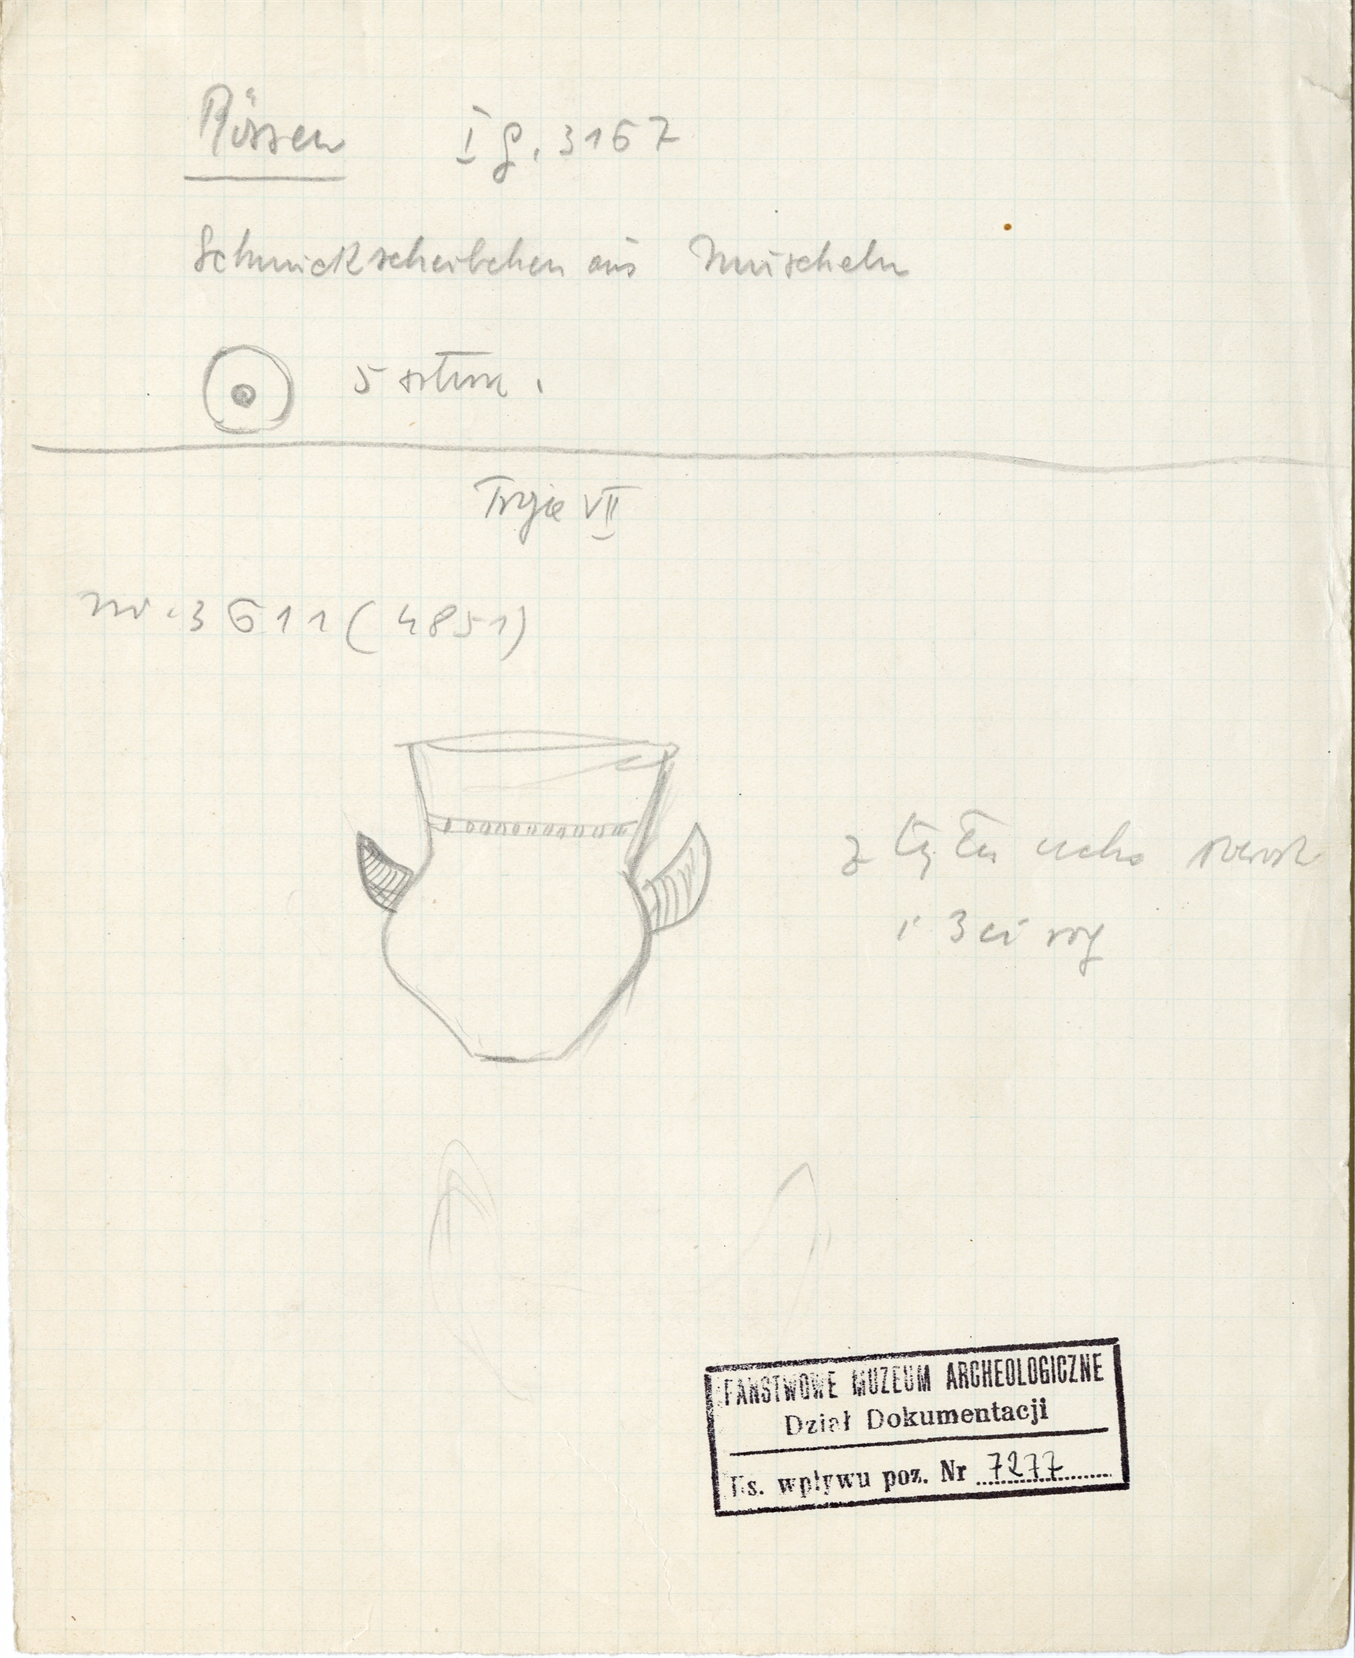 Rössen I g. 3167
Schmuckscheibchen aus Muscheln
5 sztuk.
Troja VII
nr. 3611 (4851)
z tyłu ucho
i 3ci róg
PAŃSTWOWE MUZEUM ARCHEOLOGICZNE
Dział Dokumentacji
Ks. wpływu poz. Nr 7277